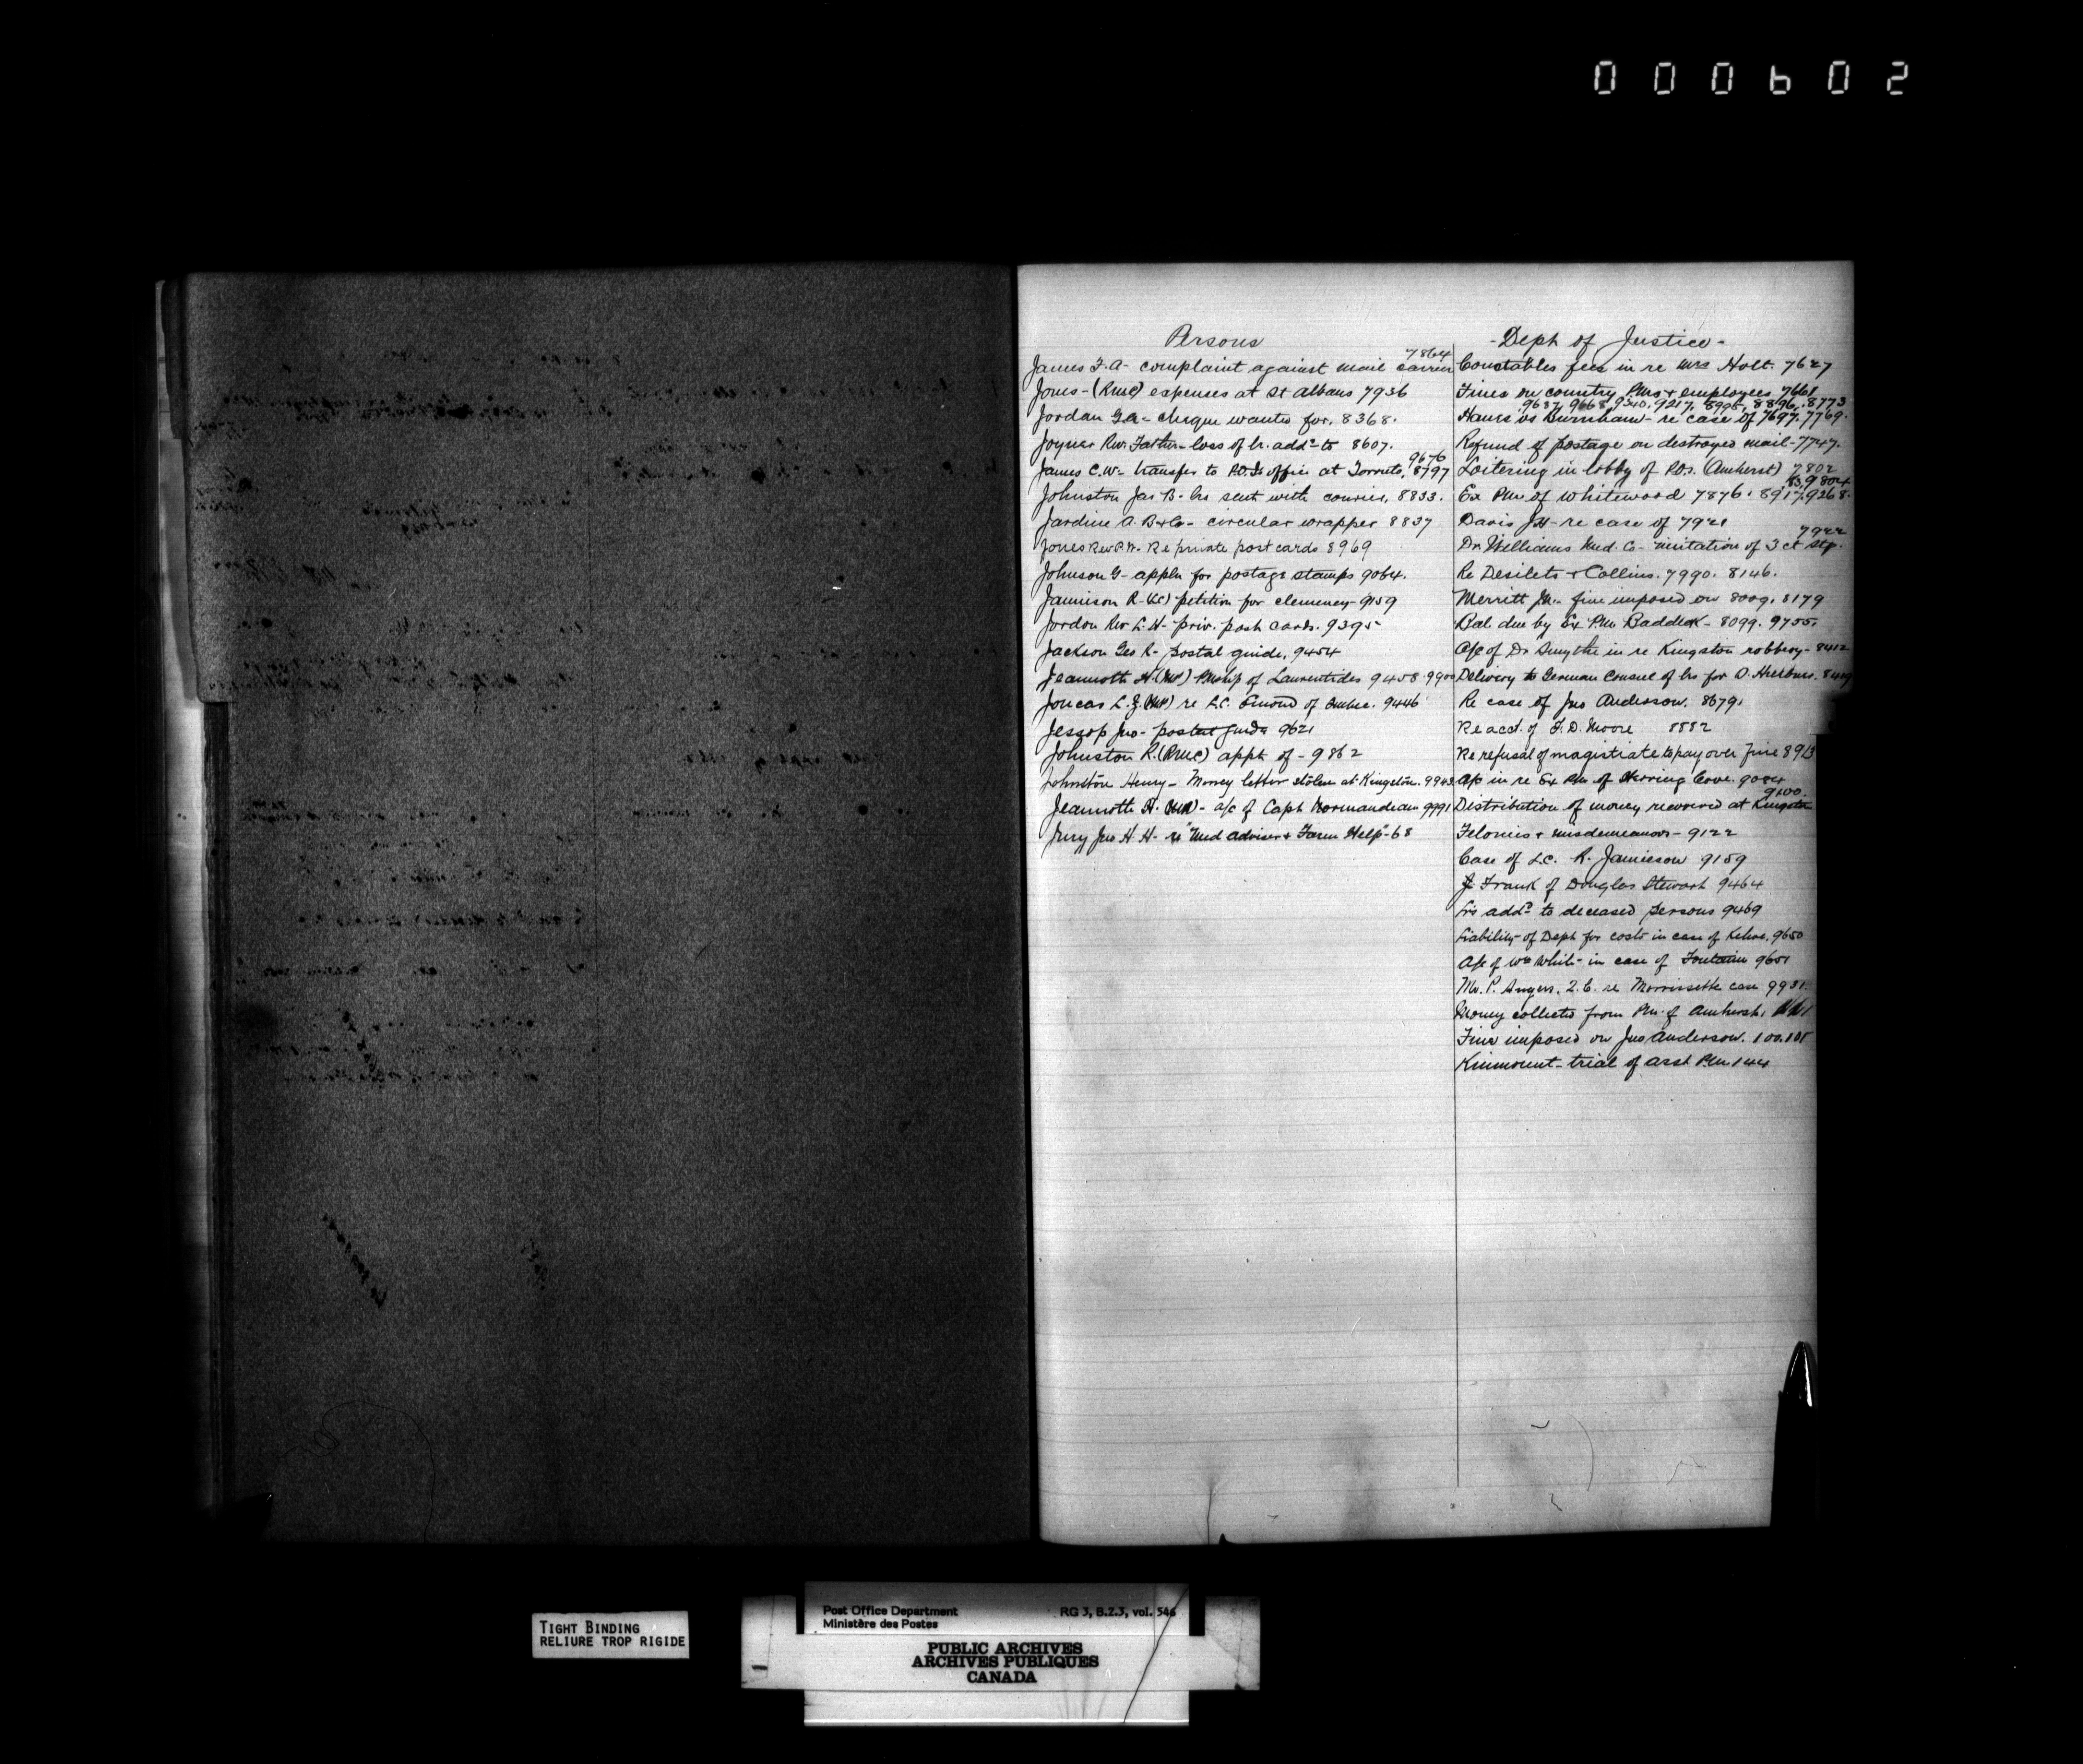 000602
Persons
James F. A- complaint against mail carrier 7864
Jones- (RMC) expenses at St Albans 7936
Jordan G.A- cheque wanted for. 8368.
Joyner Rev. Father- loss of lr. addd to 8607.
James C.W- transfer to P.O.I's office at Toronto, 8797 9676
Johnston Jas B- lrs sent with courier, 8833.
Jardine A. B & Co- circular wrapper 8837
Jones Rev P.W- Re private post cards 8969
Johnson G- appln for postage stamps 9064.
Jamieson R- (LC) petition for clemency- 9159
Jordon Rev L. H- priv. post cards. 9395
Jackson Geo R- postal guide, 9454
Jeannotte H. (MP) PMship of Laurentides 9458. 9900
Joncas L. Z. (MP) re L.C. Emond of Quebec. 9446
Jessop Jno- postal guide 9621
Johnston R. (RMC) appt of - 9862
Johnston Henry- Money letter stolen at Kingston. 9943
Jeannotte H. (MP)- a/c of Capt Normandeau 9991
Jury Jno H H- re "Med adviser & Farm Help"- 68
- Dept of Justice -
Constables fees in re Mrs Holt. 7627
Fines on country PMs & employees 7661
9637, 9668, 9340, 9217, 8995, 8896, 8773
Hanes vs Burnham- re case of 7697. 7769.
Refund of postage on destroyed mail- 7747.
Loitering in lobby of POs. (Amherst) 7802
Ex PM of Whitewood 7876. 8917, 9268.
Davis J H- re case of 7921
Dr Williams Med. Co- imitation of 3 ct stp. 7922
Re Desilets & Collins. 7990. 8146.
Merritt Jn.- fine imposed on 8009, 8179
Bal. due by Ex P.M. Baddeck- 8099. 9755.
A/c of Dr Smythe in re Kingston robbery- 8412
Delivery to German Consul of lrs for O.
Re case of Jno Anderson. 8679.
Re acct. of F. D. Moore 8882
Re refusal of magistrate to pay over fine 8913
A/c in re Ex PM of Herring Cove. 9084
Distribution of money recovered at Kingston 9100.
Felonies & misdemeanors- 9122
Case of L.C. R. Jamieson 9159
Frank of Douglas Stewart 9464
Lrs addd to deceased persons 9469
Liability of Dept for costs in case of Kehoe, 9650
A/c of Wm White in case of Fontaine 9651
Mr. P. Angers, Q.C. re Morrissette case 9931.
Money collected from PM. of Amherst,
Fine imposed on Jno Anderson. 100. 101
Kinmount- trial of asst P.M. 144
TIGHT BINDING
RELIURE TROP RIGIDE
Post Office Department
Ministère des Postes
RG 3, B.2.3, vol. 546
PUBLIC ARCHIVES
ARCHIVES PUBLIQUES
CANADA